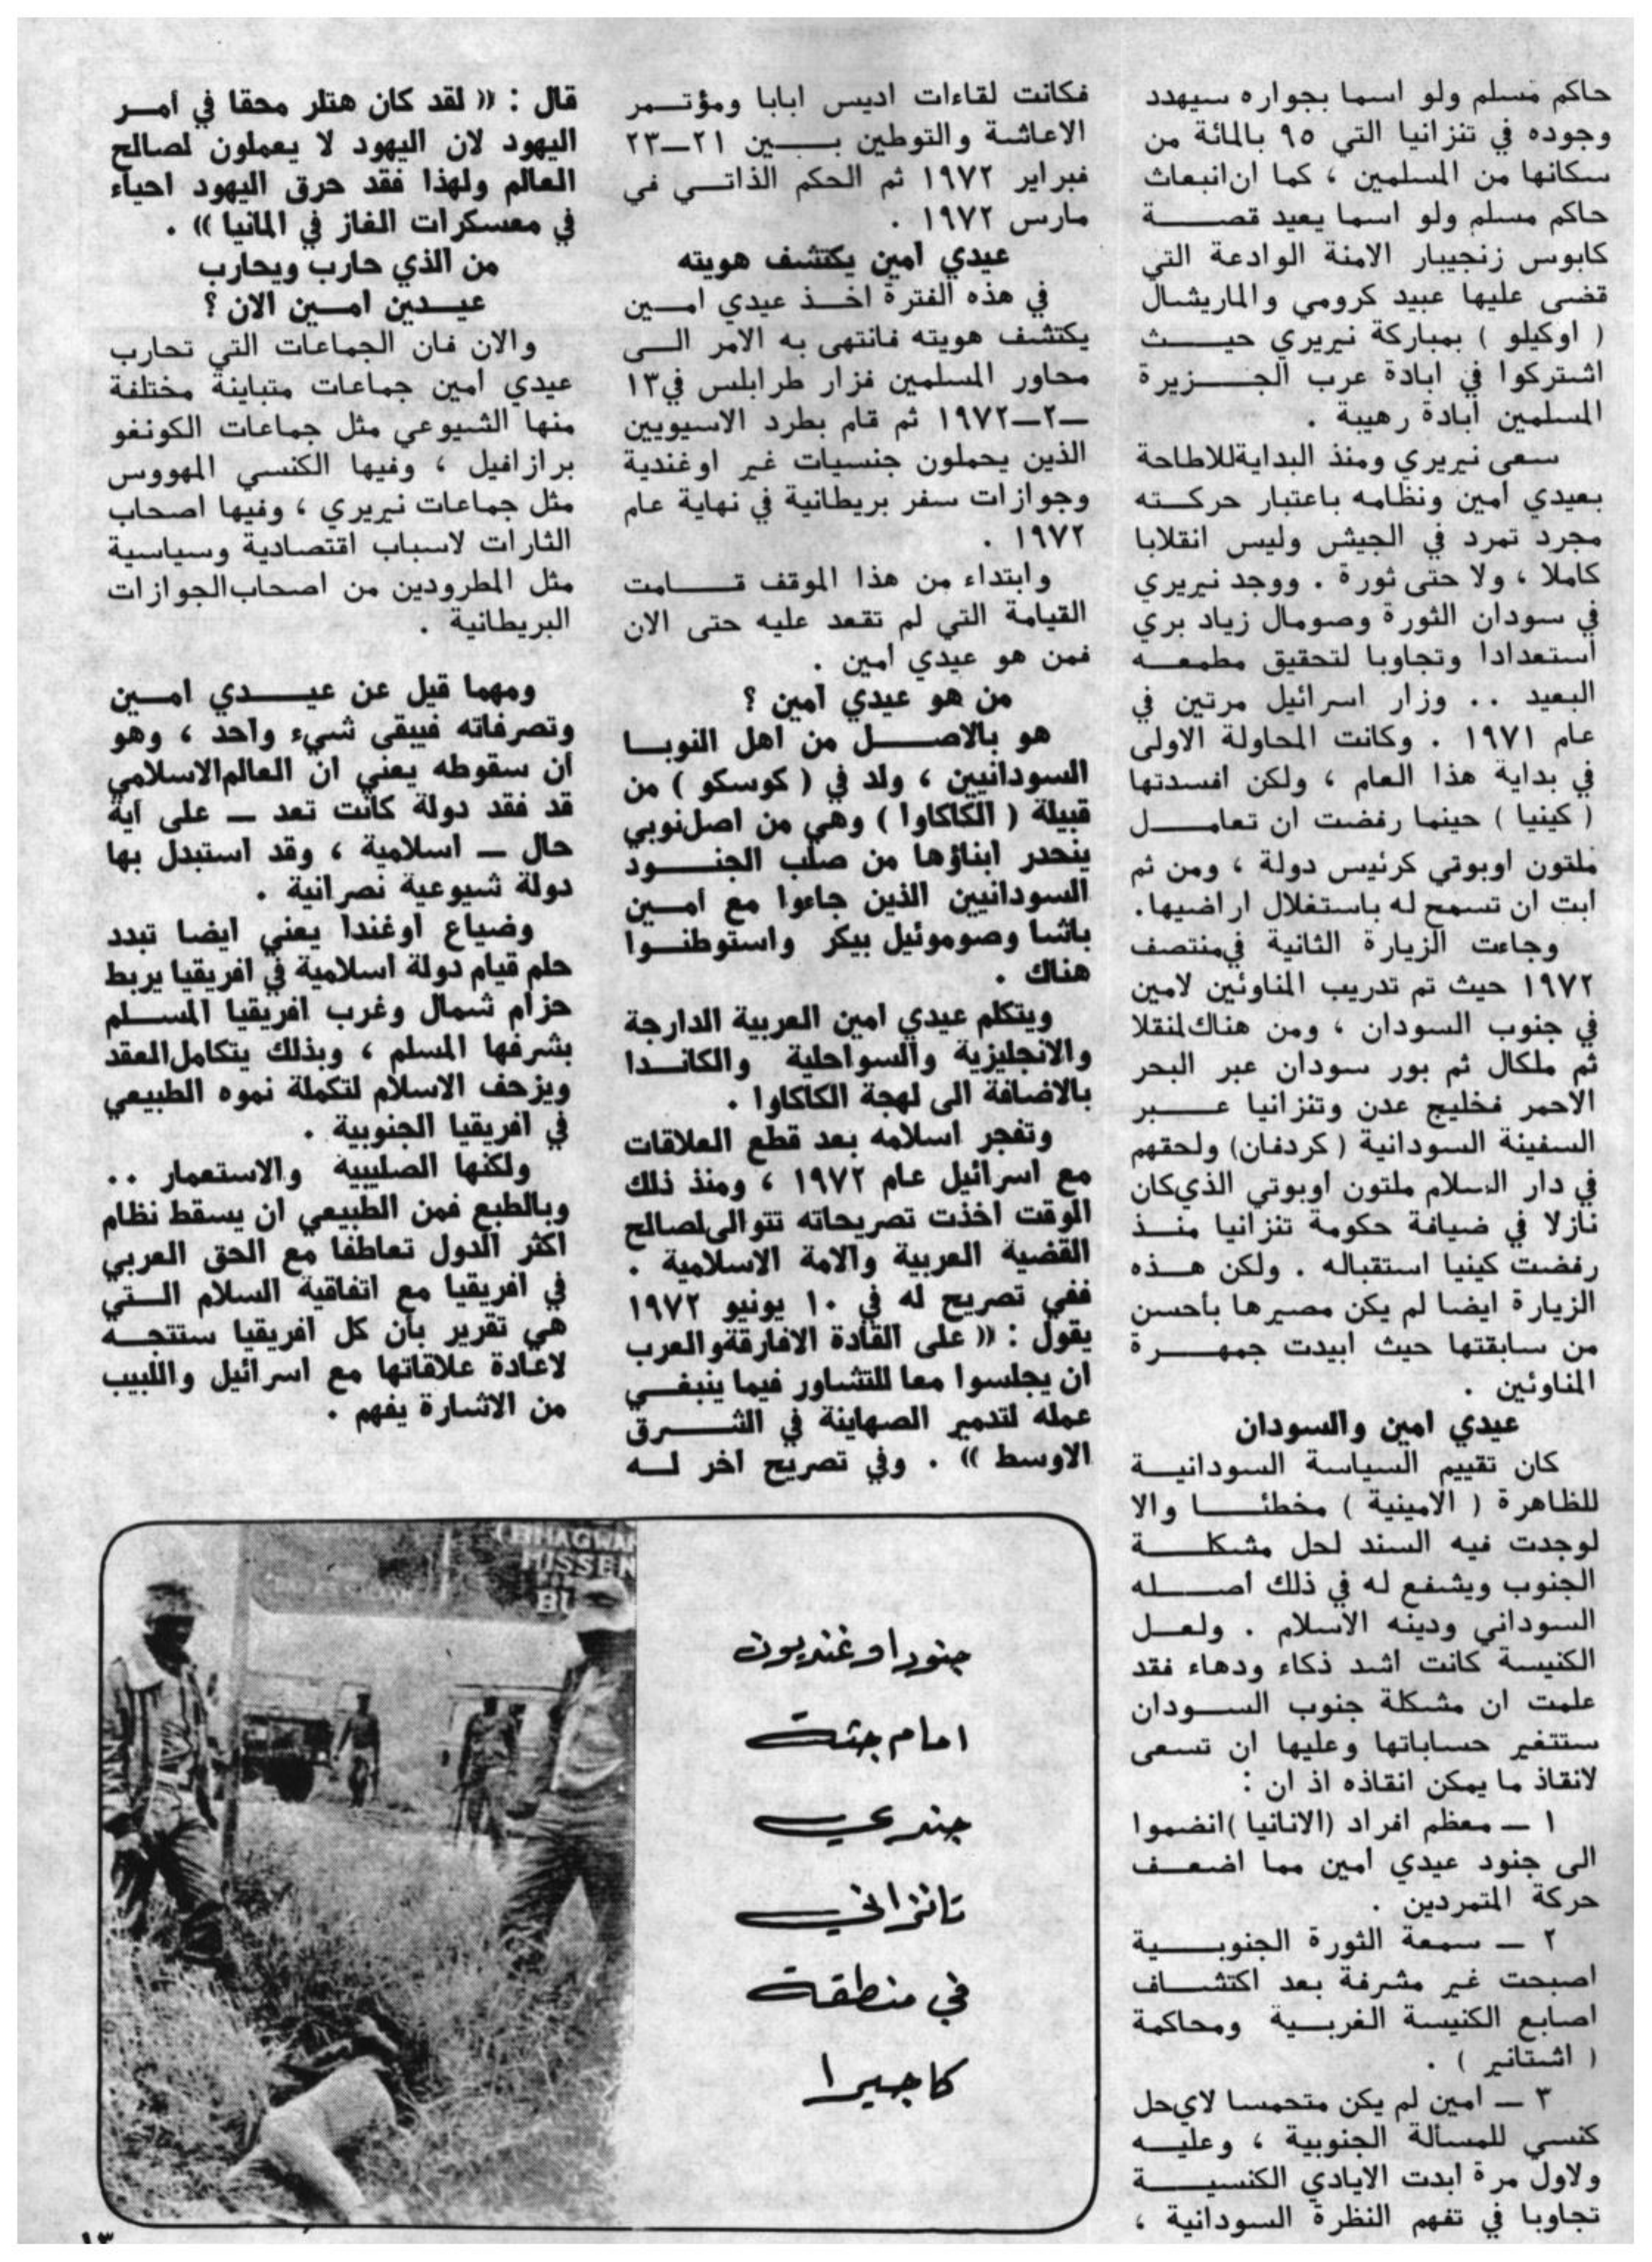 حاكم مسلم ولو اسما بجواره سيهدد
وجوده في تنزانيا التي ٩٥ بالمائة من
سكانها من المسلمين ، كما ان انبعاث
حاكم مسلم ولو اسما يعيد قصة
كابوس زنجيبار الامنة الوادعة التي
قضى عليها عبيد كرومي والماريشال
( اوكيلو ) بمباركة نيريري حيث
اشتركوا في ابادة عرب الجزيرة
المسلمين ابادة رهيبة .
سعى نيريري ومنذ البداية للاطاحة
بعيدي امين ونظامه باعتبار حركته
مجرد تمرد في الجيش وليس انقلابا
كاملا ، ولا حتى ثورة . ووجد نيريري
في سودان الثورة وصومال زياد بري
استعدادا وتجاوبا لتحقيق مطمعه
البعيد .. وزار اسرائيل مرتين في
عام ١٩٧١ . وكانت المحاولة الاولى
في بداية هذا العام ، ولكن افسدتها
( كينيا ) حينما رفضت ان تعامل
ملتون اوبوتي كرئيس دولة ، ومن ثم
ابت ان تسمح له باستغلال اراضيها.
وجاءت الزيارة الثانية في منتصف
١٩٧٢ حيث تم تدريب المناوئين لامين
في جنوب السودان ، ومن هناك لمنقلا
ثم ملكال ثم بور سودان عبر البحر
الاحمر فخليج عدن وتنزانيا عبر
السفينة السودانية ( كردفان) ولحقهم
في دار السلام ملتون اوبوتي الذي كان
نازلا في ضيافة حكومة تنزانيا منذ
رفضت كينيا استقباله . ولكن هذه
الزيارة ايضا لم يكن مصيرها بأحسن
من سابقتها حيث ابيدت جمهرة
المناوئين .
عيدي امين والسودان
كان تقييم السياسة السودانية
للظاهرة ( الامينية ) مخطئا والا
لوجدت فيه السند لحل مشكلة
الجنوب ويشفع له في ذلك اصله
السوداني ودينه الاسلام . ولعل
الكنيسة كانت اشد ذكاء ودهاء فقد
علمت ان مشكلة جنوب السودان
ستتغير حساباتها وعليها ان تسعى
لانقاذ ما يمكن انقاذه اذ ان :
١ ـ معظم افراد (الانانيا) انضموا
الى جنود عيدي امين مما اضعف
حركة المتمردين .
٢ ـ سمعة الثورة الجنوبية
اصبحت غير مشرفة بعد اكتشاف
اصابع الكنيسة الغربية ومحاكمة
( اشتانير ) .
٣ ـ امين لم يكن متحمسا لاي حل
كنسي للمسألة الجنوبية ، وعليه
ولاول مرة ابدت الايادي الكنسية
تجاوبا في تفهم النظرة السودانية ،
فكانت لقاءات اديس ابابا ومؤتمر
الاعاشة والتوطين بين ٢١ـ٢٣
فبراير ١٩٧٢ ثم الحكم الذاتي في
مارس ١٩٧٢ .
عيدي امين يكتشف هويته
في هذه الفترة اخذ عيدي امين
يكتشف هويته فانتهى به الامر الى
محاور المسلمين فزار طرابلس في ١٣
ـ٢ـ١٩٧٢ ثم قام بطرد الاسيويين
الذين يحملون جنسيات غير اوغندية
وجوازات سفر بريطانية في نهاية عام
١٩٧٢ .
وابتداء من هذا الموقف قامت
القيامة التي لم تقعد عليه حتى الان
فمن هو عيدي امين .
من هو عيدي امين ؟
هو بالاصل من اهل النوبا
السودانيين ، ولد في ( كوسكو ) من
قبيلة ( الكاكاوا ) وهي من اصل نوبي
ينحدر ابناؤها من صلب الجنود
السودانيين الذين جاءوا مع امين
باشا وصوموئيل بيكر واستوطنوا
هناك .
ويتكلم عيدي امين العربية الدارجة
والانجليزية والسواحلية والكاندا
بالاضافة الى لهجة الكاكاوا .
وتفجر اسلامه بعد قطع العلاقات
مع اسرائيل عام ١٩٧٢ ، ومنذ ذلك
الوقت اخذت تصريحاته تتوالى لصالح
القضية العربية والامة الاسلامية .
ففي تصريح له في ١٠ يونيو ١٩٧٢
يقول : (( على القادة الافارقة والعرب
ان يجلسوا معا للتشاور فيما ينبغي
عمله لتدمير الصهاينة في الشرق
الاوسط )) . وفي تصريح اخر له
قال : (( لقد كان هتلر محقا في امر
اليهود لان اليهود لا يعملون لصالح
العالم ولهذا فقد حرق اليهود احياء
في معسكرات الغاز في المانيا )) .
من الذي حارب ويحارب
عيدين امين الان ؟
والان فان الجماعات التي تحارب
عيدي امين جماعات متباينة مختلفة
منها الشيوعي مثل جماعات الكونغو
برازافيل ، وفيها الكنسي المهووس
مثل جماعات نيريري ، وفيها اصحاب
الثارات لاسباب اقتصادية وسياسية
مثل المطرودين من اصحاب الجوازات
البريطانية .
ومهما قيل عن عيدي امين
وتصرفاته فيبقى شيء واحد ، وهو
ان سقوطه يعني ان العالم الاسلامي
قد فقد دولة كانت تعد ـ على اية
حال ـ اسلامية ، وقد استبدل بها
دولة شيوعية نصرانية .
وضياع اوغندا يعني ايضا تبدد
حلم قيام دولة اسلامية في افريقيا يربط
حزام شمال وغرب افريقيا المسلم
بشرفها المسلم ، وبذلك يتكامل العقد
ويزحف الاسلام لتكملة نموه الطبيعي
في افريقيا الجنوبية .
ولكنها الصليبية والاستعمار ..
وبالطبع فمن الطبيعي ان يسقط نظام
اكثر الدول تعاطفا مع الحق العربي
في افريقيا مع اتفاقية السلام التي
هي تقرير بأن كل افريقيا ستتجه
لاعادة علاقاتها مع اسرائيل واللبيب
من الاشارة يفهم .
BHAGWA
HISSEN
BU
جنود اوغنديون
امام جثة
جندي
تانزاني
في منطقة
كاجيرا
١٣